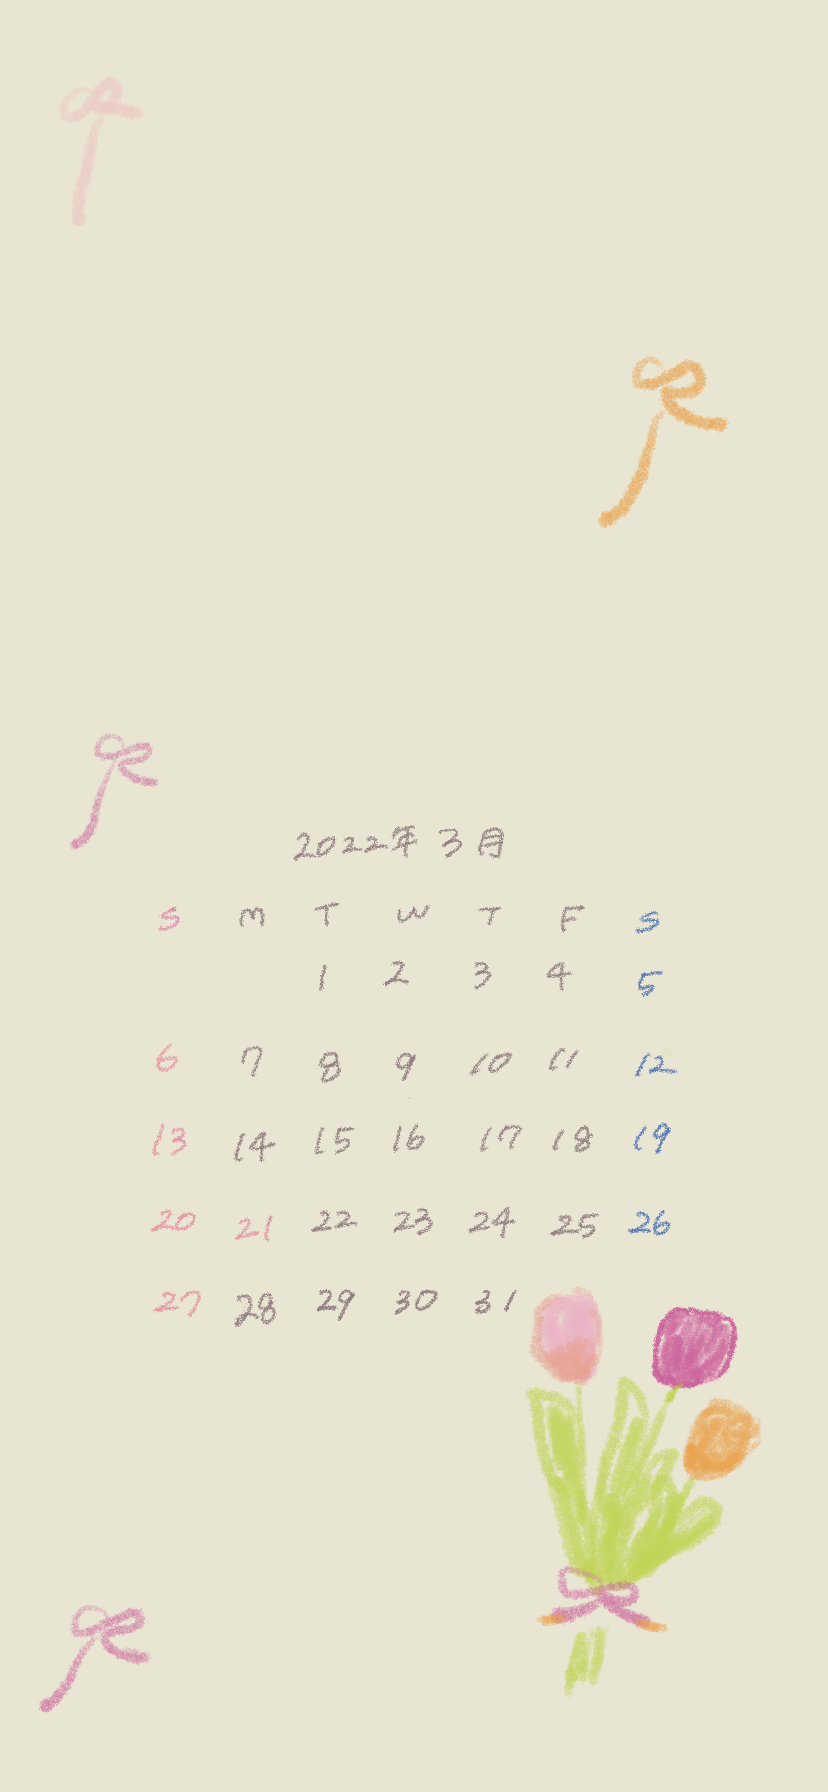 2022年 3月
S M T W T F S
1 2 3 4 5
6 7 8 9 10 11 12
13 14 15 16 17 18 19
20 21 22 23 24 25 26
27 28 29 30 31